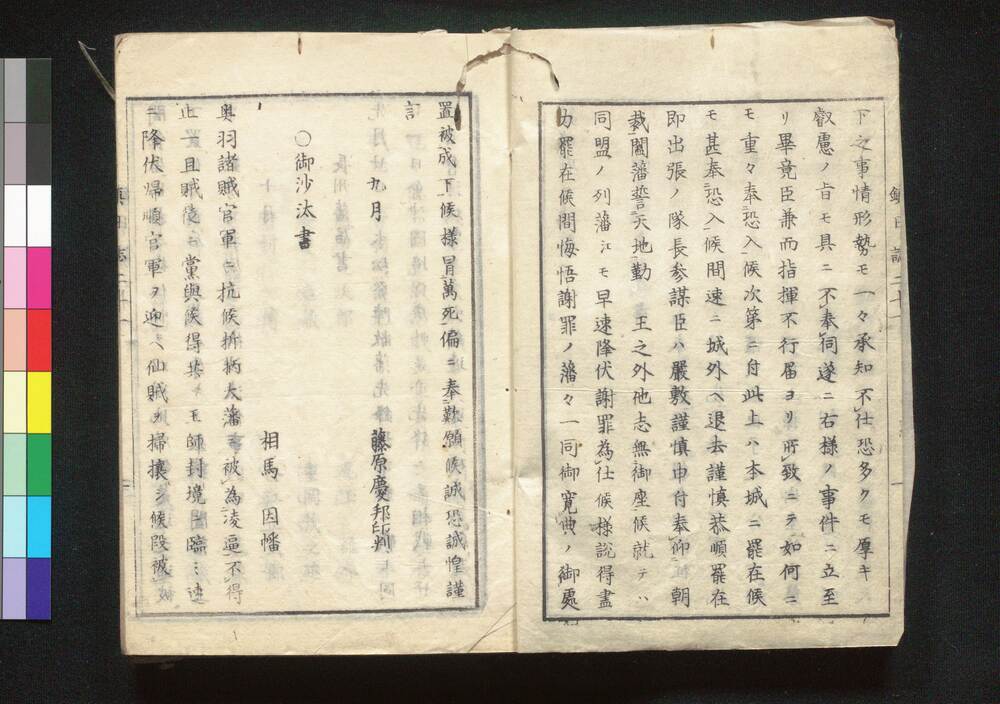 下之事情形勢モ一々承知不仕恐多クモ厚キ
叡慮ノ旨モ具ニ不奉伺遂ニ右様ノ事件ニ立至
リ畢竟臣兼而指揮不行届ヨリ所致ニテ如何ニ
モ重々奉恐入候次第ニ付此上ハ本城ニ罷在候
モ甚奉恐入候間速ニ城外ヘ退去謹慎恭順罷在
即出張ノ隊長参謀臣ハ嚴敷謹慎申付奉仰 朝
裁闔藩誓天地勤 王之外他志無御座候就テハ
同盟ノ列藩江モ早速降伏謝罪為仕候様說得盡
力罷在候間悔悟謝罪ノ藩々一同御寛典ノ御處
置被成下候様冒萬死偏ニ奉歎願候誠恐誠惶謹
言
九月 藤原慶邦印判
○御沙汰書
相馬因幡
奥羽諸賊官軍ニ抗候折柄大藩ニ被為凌逼不得
止一且賊徒ニ黨與候得共 王師封境ニ臨ミ速
ニ降伏帰順官軍ヲ迎ヘ仙賊ヲ掃攘シ候段被
鎮日誌二十一